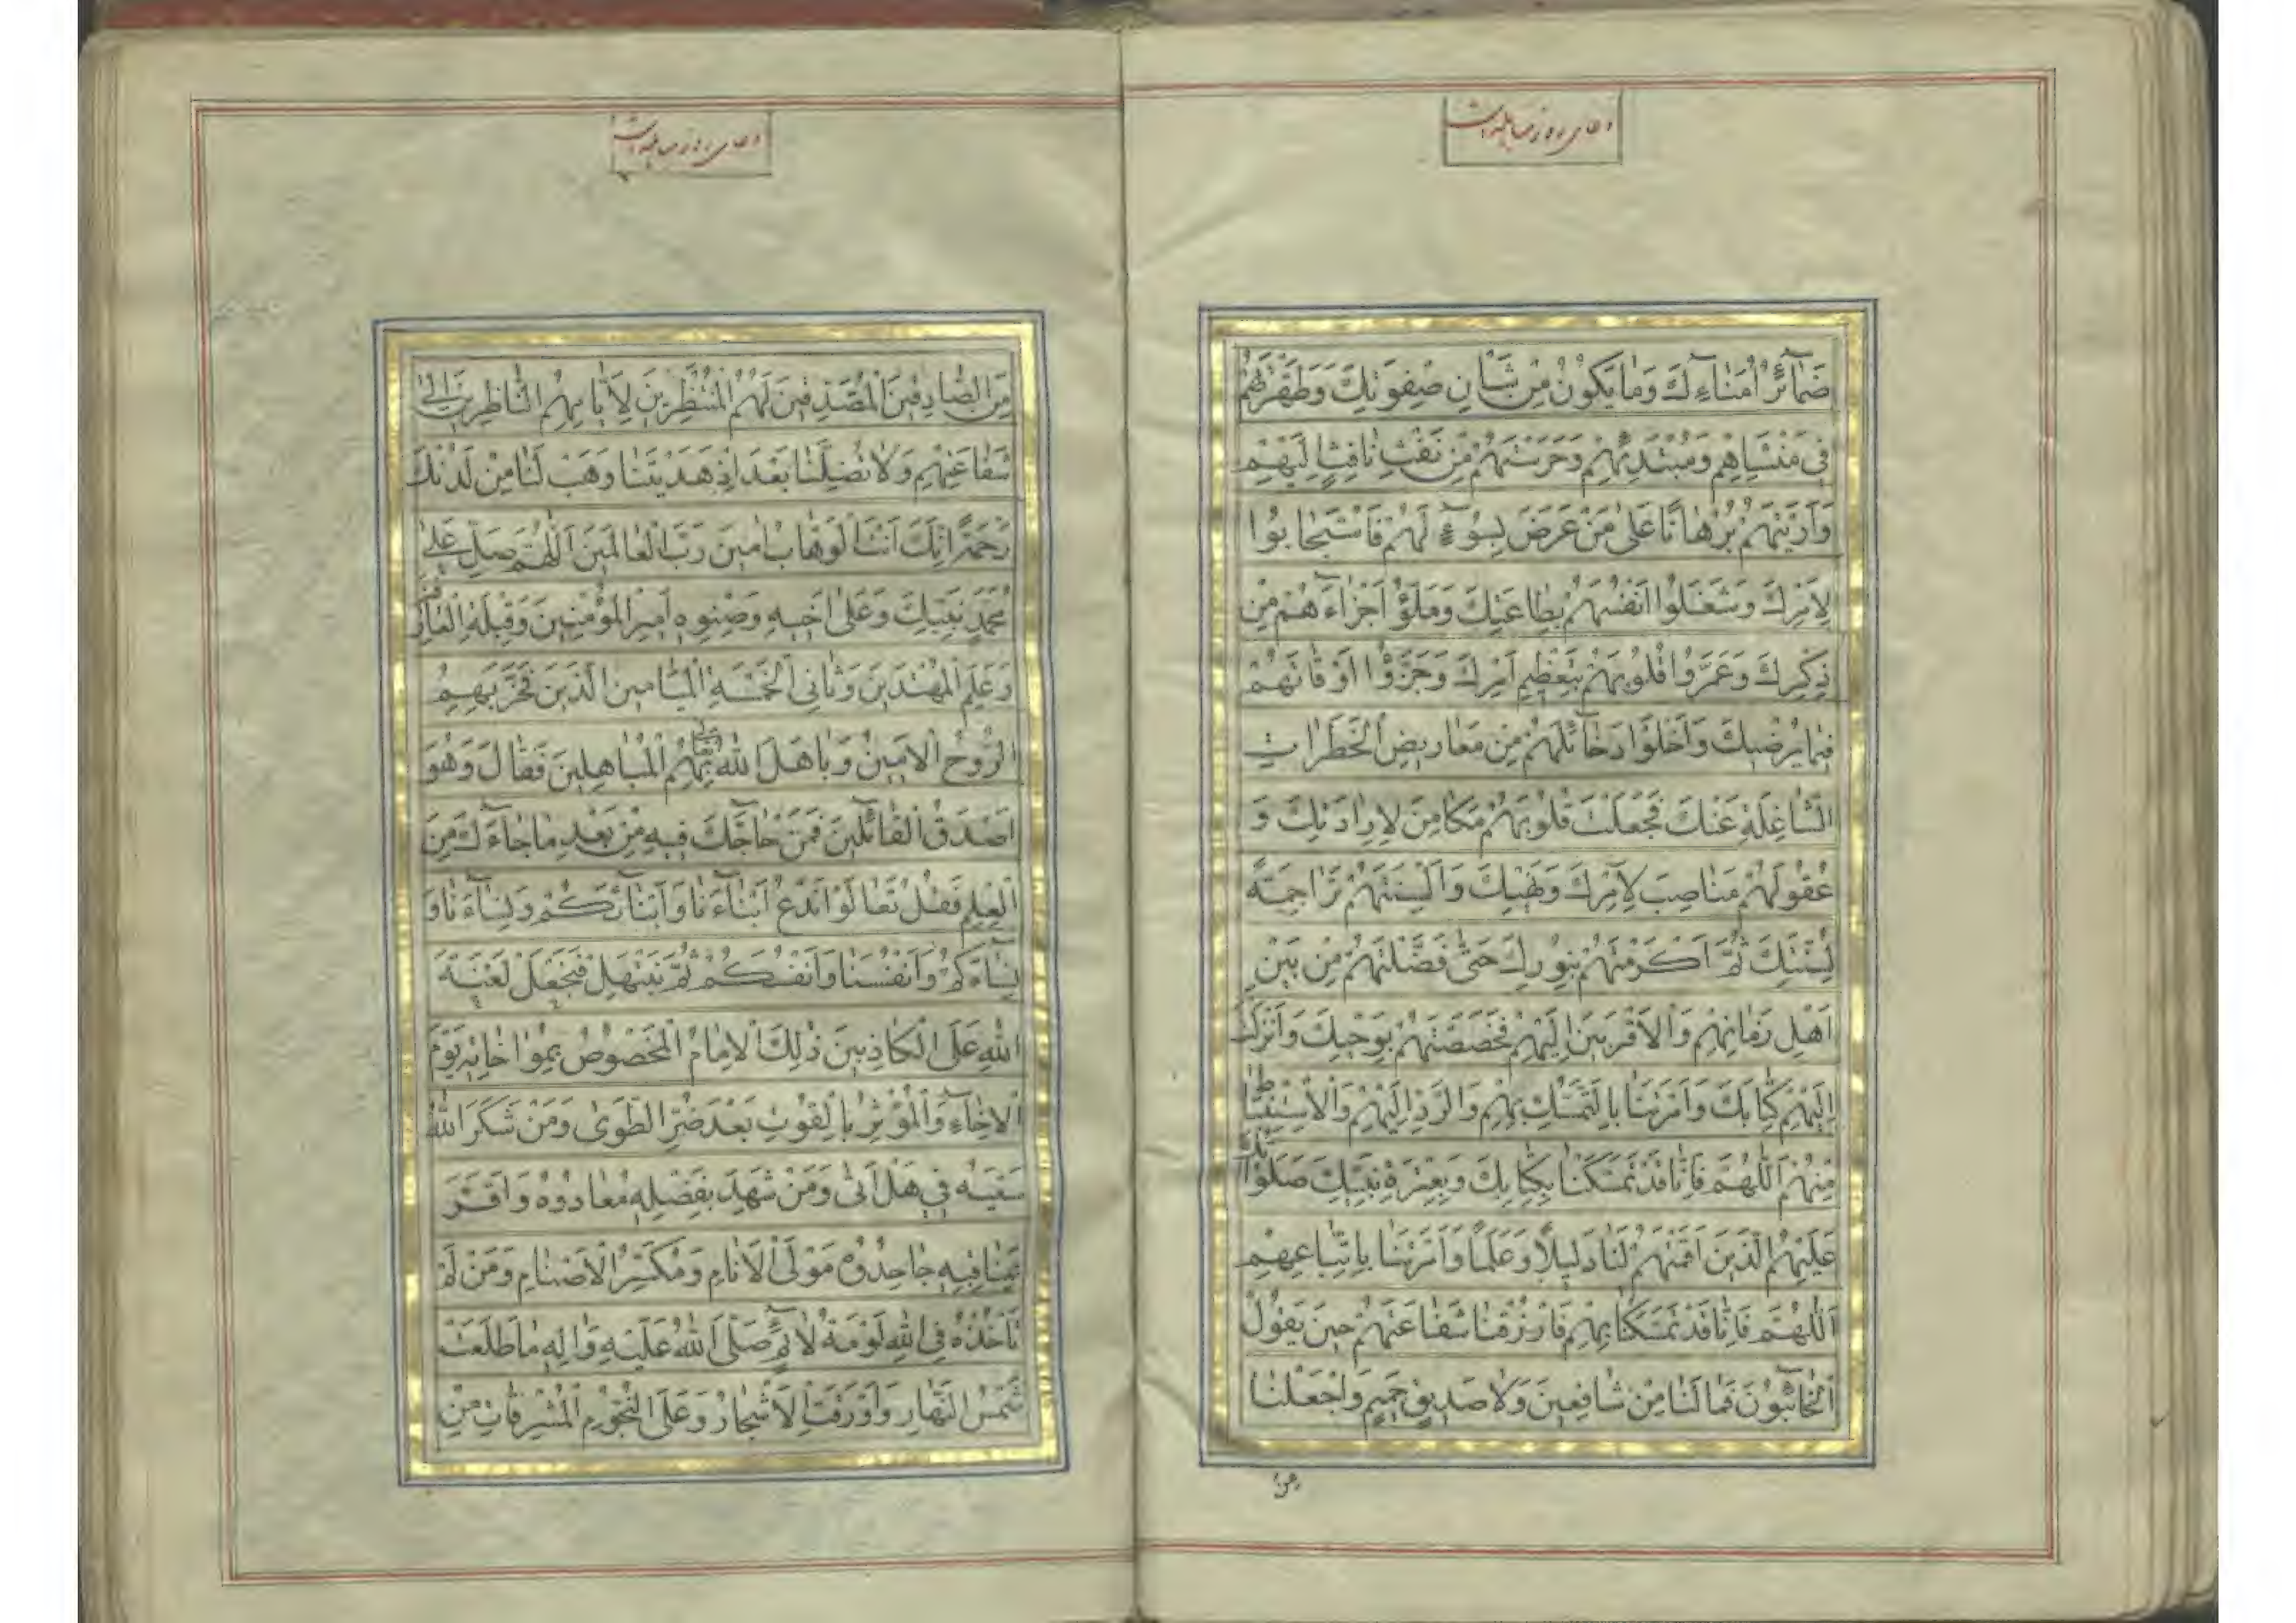 دعای روز مباهله است
ضَمآئِرُ اُمَنآءِكَ وَمٰا يَكُونُ مِنْ شَاْنِ صِفْوَتِكَ وَطَهَّرْتَهُمْ
فى مَنْشَاِهِمْ وَمُبْتَدَئِهِمْ وَحَرَسْتَهُمْ مِنْ نَفْثِ نٰافِثٍ اِلَيْهِمْ
وَاَرَيْتَهُمْ بُرْهٰانًا عَلىٰ مَنْ عَرَضَ بِسُوٓءٍ لَهُمْ فَاسْتَجٰابُوا
لِاَمْرِكَ وَشَغَلُوا اَنْفُسَهُمْ بِطٰاعَتِكَ وَمَلَؤُ اَجْزٰآءَهُمْ مِنْ
ذِكْرِكَ وَعَمَّرُوا قُلُوبَهُمْ بِتَعْظِيمِ اَمْرِكَ وَجَزَّؤُا اَوْقٰاتَهُمْ
فيمٰا يُرْضيكَ وَاَخْلَوْا دَخٰآئِلَهُمْ مِنْ مَعٰاريضِ الْخَطَرٰاتِ
الشّٰاغِلَةِ عَنْكَ فَجَعَلْتَ قُلُوبَهُمْ مَكٰامِنَ لِاِرٰادَتِكَ وَ
عُقُولَهُمْ مَنٰاصِبَ لِاَمْرِكَ وَنَهْيِكَ وَاَلْسِنَتَهُمْ تَرٰاجِمَةً
لِسُنَّتِكَ ثُمَّ اَكْرَمْتَهُمْ بِنُورِكَ حَتّىٰ فَضَّلْتَهُمْ مِنْ بَيْنِ
اَهْلِ زَمٰانِهِمْ وَالْاَقْرَبينَ اِلَيْهِمْ فَخَصَصْتَهُمْ بِوَحْيِكَ وَاَنْزَلْتَ
اِلَيْهِمْ كِتٰابَكَ وَاَمَرْتَنٰا بِالتَّمَسُّكِ بِهِمْ وَالرَّدِّ اِلَيْهِمْ وَالْاِسْتِنْبٰاطِ
مِنْهُمْ اَللّٰهُمَّ فَاِنّٰا قَدْ تَمَسَّكْنٰا بِكِتٰابِكَ وَبِعِتْرَةِ نَبِيِّكَ صَلَوٰاتُكَ
عَلَيْهِمُ الَّذينَ اَقَمْتَهُمْ لَنٰا دَليلًا وَعَلَمًا وَاَمَرْتَنٰا بِاتِّبٰاعِهِمْ
اَللّٰهُمَّ فَاِنّٰا قَدْ تَمَسَّكْنٰا بِهِمْ فَارْزُقْنٰا شَفٰاعَتَهُمْ حينَ يَقُولُ
الْخٰآئِبُونَ فَمٰا لَنٰا مِنْ شٰافِعينَ وَلاٰ صَديقٍ حَميمٍ وَاجْعَلْنٰا
من
دعای روز مباهله است
مِنَ الصّٰادِقينَ الْمُصَدِّقينَ لَهُمُ الْمُنْتَظِرينَ لِاَيّٰامِهِمُ النّٰاظِرينَ اِلىٰ
شَفٰاعَتِهِمْ وَلاٰ تُضِلَّنٰا بَعْدَ اِذْ هَدَيْتَنٰا وَهَبْ لَنٰا مِنْ لَدُنْكَ
رَحْمَةً اِنَّكَ اَنْتَ الْوَهّٰابُ اٰمينَ رَبَّ الْعٰالَمينَ اَللّٰهُمَّ صَلِّ عَلىٰ
مُحَمَّدٍ نَبِيِّكَ وَعَلىٰ اَخيهِ وَصِنْوِهِ اَميرِ الْمُؤْمِنينَ وَقِبْلَةِ الْعٰارِفينَ
وَعَلَمِ الْمُهْتَدينَ وَثٰانِى الْخَمْسَةِ الْمَيٰامينِ الَّذينَ فَخَرَ بِهِمُ
الرُّوحُ الْاَمينُ وَبٰاهَلَ اللّٰهُ تعالى بِهِمُ الْمُبٰاهِلينَ فَقٰالَ وَهُوَ
اَصْدَقُ الْقٰآئِلينَ فَمَنْ حٰآجَّكَ فيهِ مِنْ بَعْدِ مٰا جٰآءَكَ مِنَ
الْعِلْمِ فَقُلْ تَعٰالَوْا نَدْعُ اَبْنٰآءَنٰا وَاَبْنٰآئَكُمْ وَنِسٰآءَنٰا وَ
نِسٰآءَكُمْ وَاَنْفُسَنٰا وَاَنْفُسَكُمْ ثُمَّ نَبْتَهِلْ فَنَجْعَلْ لَعْنَةَ
اللّٰهِ عَلَى الْكٰاذِبينَ ذٰلِكَ الْاِمٰامُ الْمَخْصُوصُ بِمُوٰاخٰاتِهِ يَوْمَ
الْاِخٰآءِ وَالْمُؤْثِرُ بِالْقُوتِ بَعْدَ ضُرِّ الطَّوىٰ وَمَنْ شَكَرَ اللّٰهُ
سَعْيَهُ فى هَلْ اَتىٰ وَمَنْ شَهِدَ بِفَضْلِهِ مُعٰادُوهُ وَاَقَرَّ
بِمَنٰاقِبِهِ جٰاحِدُوهُ مَوْلَى الْاَنٰامِ وَمُكَسِّرُ الْاَصْنٰامِ وَمَنْ لَمْ
تَاْخُذْهُ فِى اللّٰهِ لَوْمَةُ لاٰئِمٍ صَلَّى اللّٰهُ عَلَيْهِ وَاٰلِهِ مٰا طَلَعَتْ
شَمْسُ النَّهٰارِ وَاَوْرَقَتِ الْاَشْجٰارُ وَعَلَى النُّجُومِ الْمُشْرِقٰاتِ مِنْ